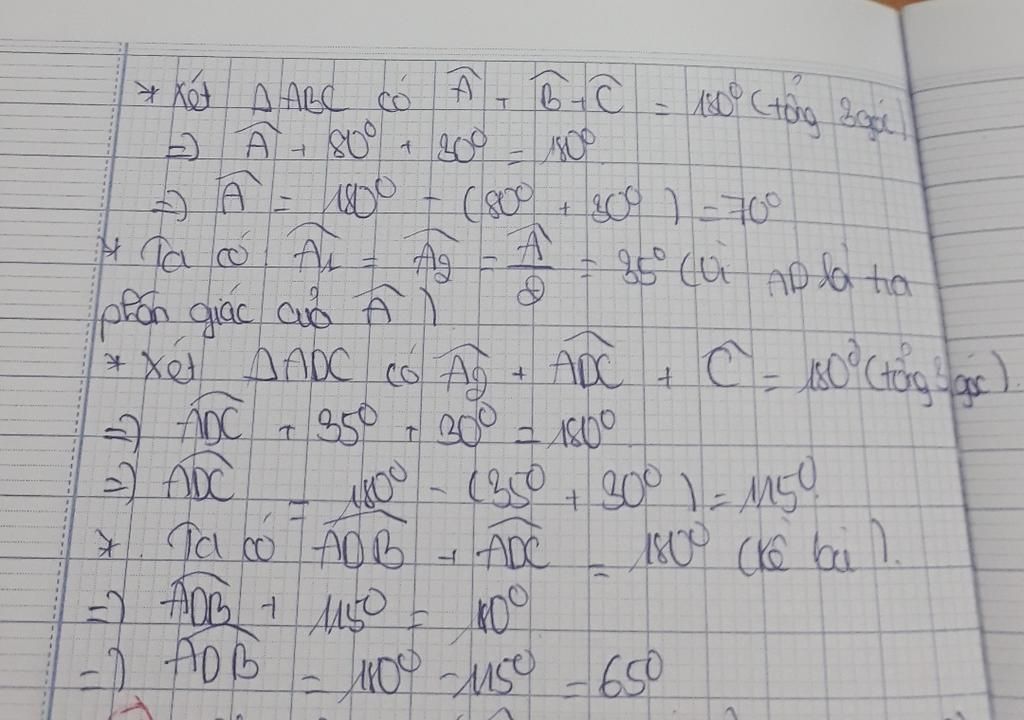 * Xét ΔABC có Â + B̂ + Ĉ = 180° (tổng 3 góc)
=> Â + 80° + 30° = 180°
=> Â = 180° - (80° + 30°) = 70°
* Ta có Â₁ = Â₂ = Â/2 = 35° (Vì AD là tia
phân giác của Â)
* Xét ΔADC có Â₂ + ADC + Ĉ = 180° (tổng 3 góc).
=> ADC + 35° + 30° = 180°
=> ADC = 180° - (35° + 30°) = 115°
* Ta có ADB + ADC = 180° (kề bù).
=> ADB + 115° = 180°
=> ADB = 180° - 115° = 65°